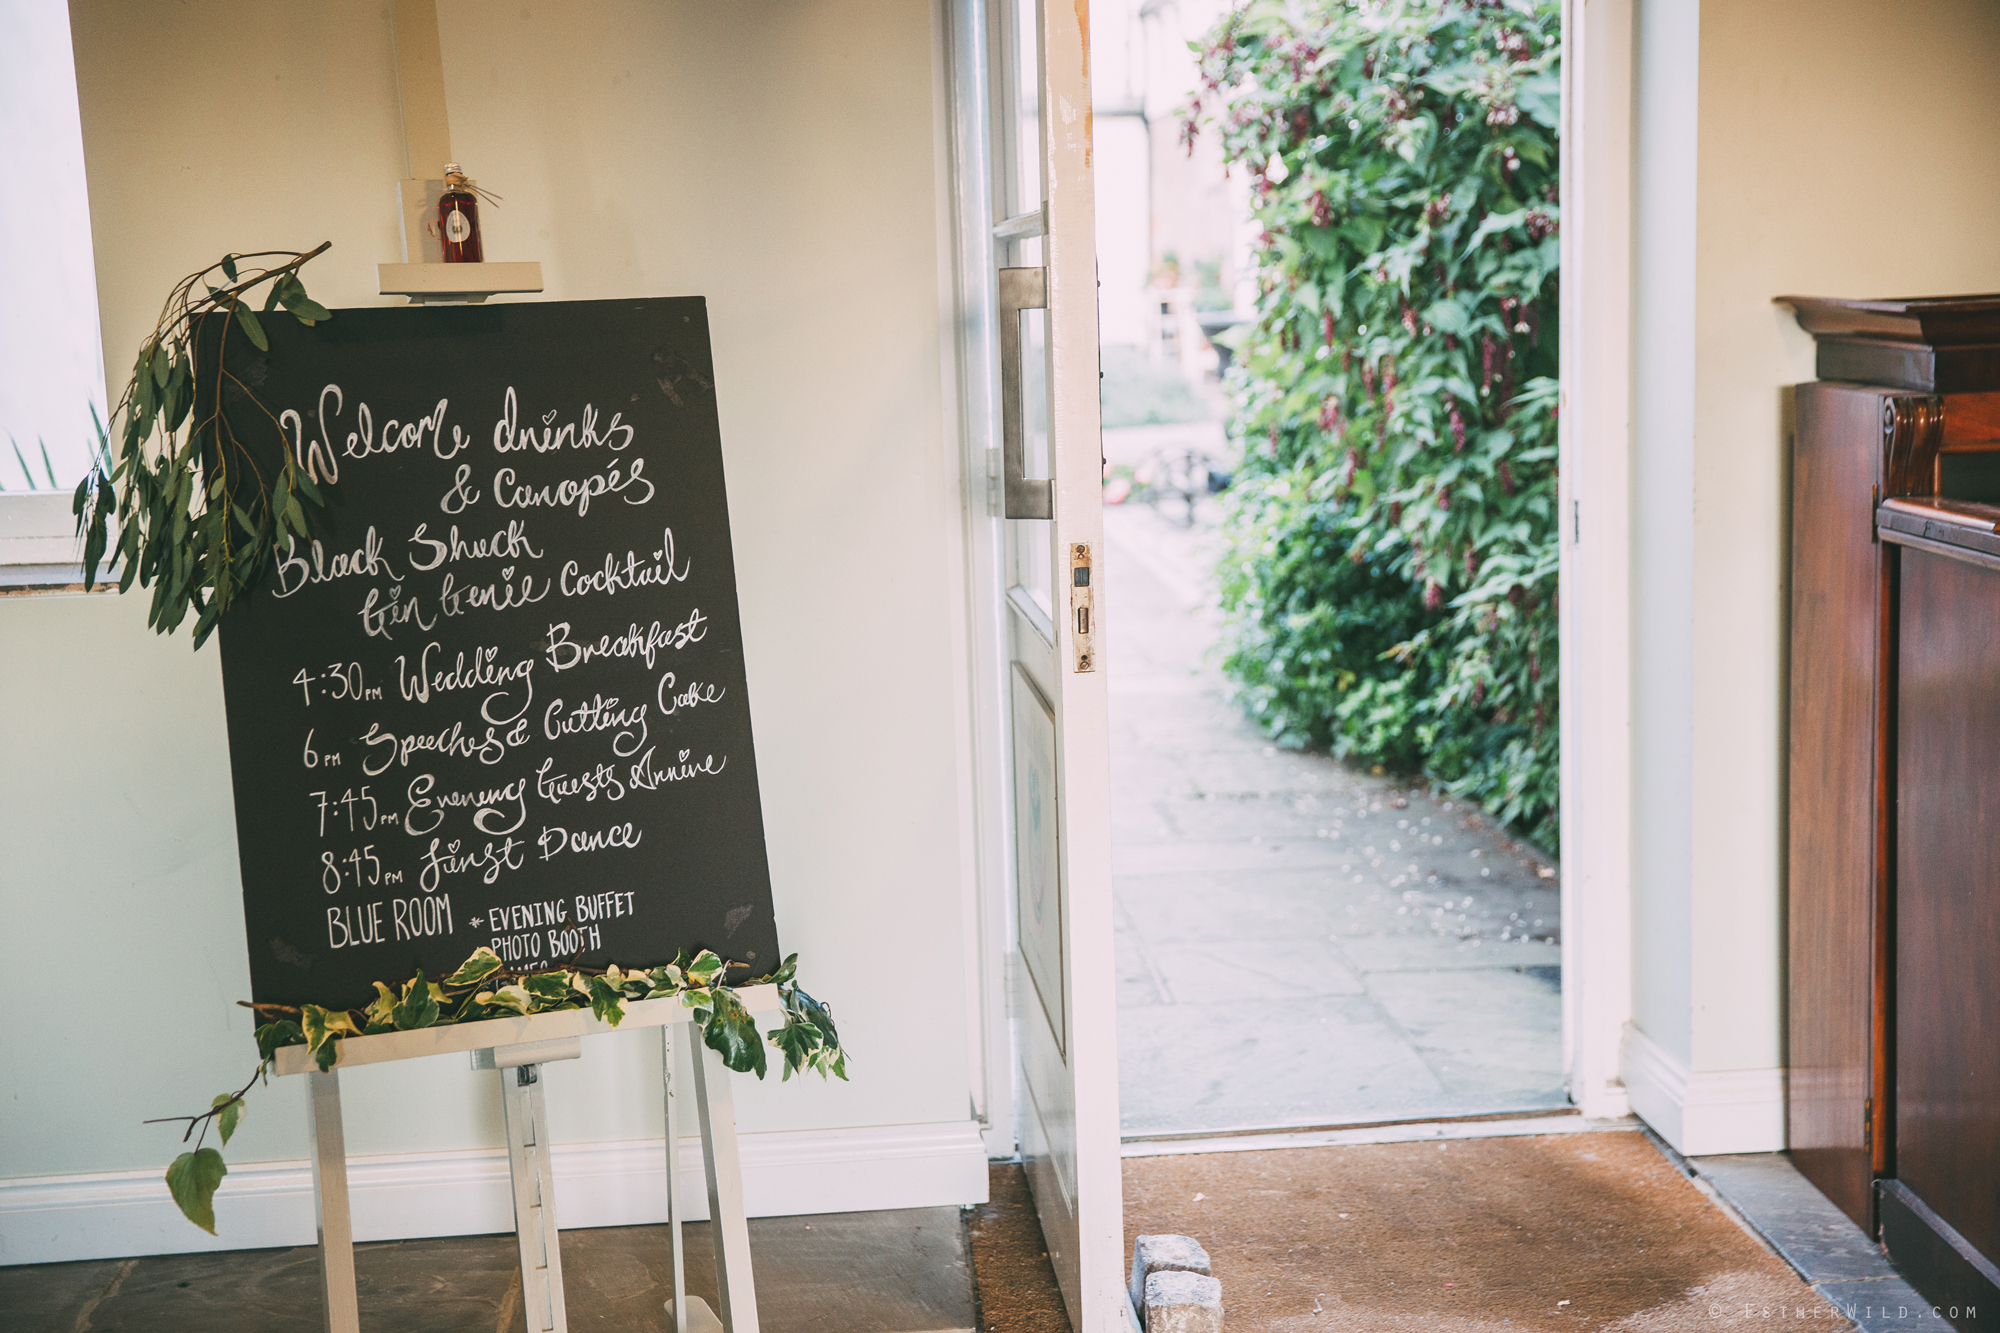 Welcome drinks
& Canapés
Black Shuck
Gin Genie Cocktail
4:30PM Wedding Breakfast
6PM Speeches & Cutting Cake
7:45PM Evening Guests Arrive
8:45PM First Dance
BLUE ROOM * EVENING BUFFET
PHOTO BOOTH
© ESTHERWILD.COM